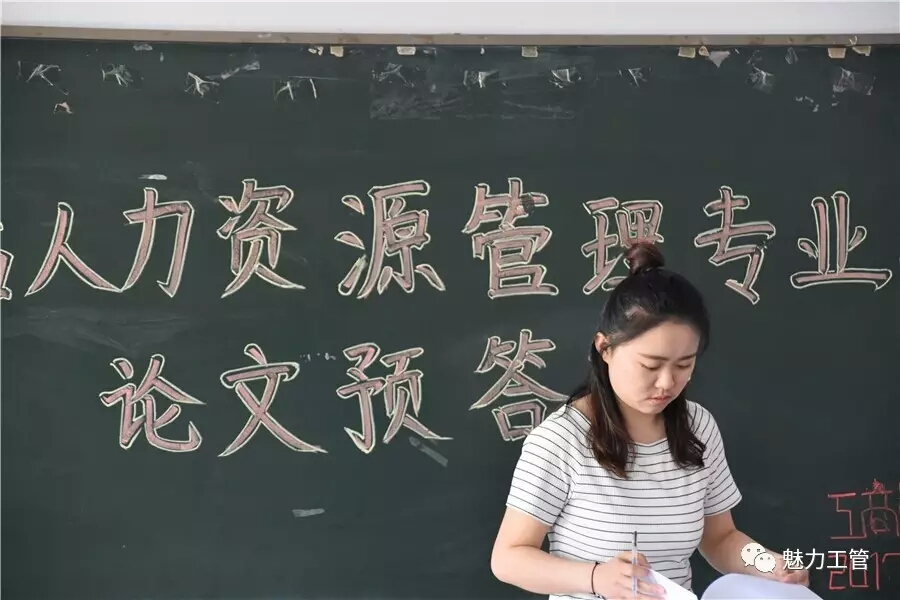 人力资源管理专业
论文预答
工商
2017
魅力工管